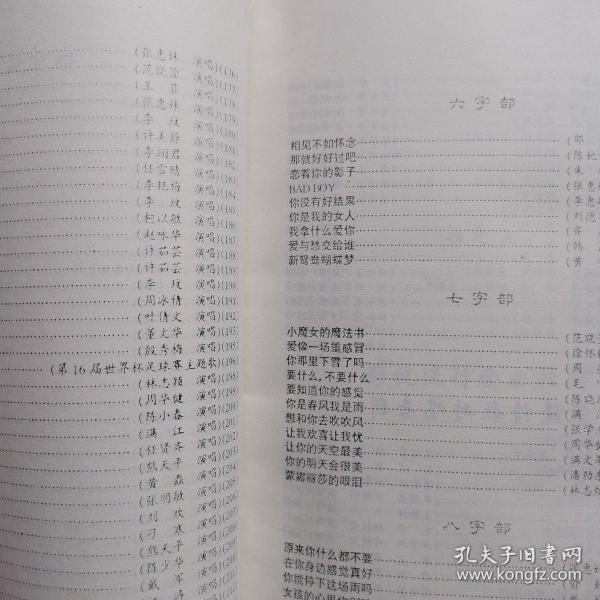 (张惠妹 演唱)(176)
(范晓萱 演唱)(177)
(王菲 演唱)(178)
(张惠妹 演唱)(179)
(李玟 演唱)(180)
(许美静 演唱)(181)
(李翊君 演唱)(182)
(任雪晴 演唱)(183)
(李艳梅 演唱)(184)
(李玟 演唱)(185)
(柯以敏 演唱)(186)
(赵咏华 演唱)(187)
(许茹芸 演唱)(188)
(许茹芸 演唱)(189)
(李玟 演唱)(190)
(周冰倩 演唱)(191)
(叶倩文 演唱)(192)
(董文华 演唱)(193)
(殷秀梅 演唱)(195)
(第16届世界杯足球赛主题歌)(196)
(林志颖 演唱)
(周华健 演唱)
(陈小春 演唱)
(满江 演唱)
(任贤齐 演唱)
(熊天平 演唱)
(黄磊 演唱)
(张明敏 演唱)
(刘欢 演唱)
(刁寒 演唱)
(熊天平 演唱)
(陈少华 演唱)
(戴军 演唱)
六字部
相见不如怀念 (那
那就好好过吧 (陈
恋着你的影子 (朱
BAD BOY (张惠
你没有好结果 (李惠
你是我的女人 (刘德
我拿什么爱你 (齐
爱与愁交给谁 (韩
新鸳鸯蝴蝶梦 (黄
七字部
小魔女的魔法书 (范晓
爱像一场重感冒 (徐怀
你那里下雪了吗 (周
要什么,不要什么 (毛
要知道你的感觉 (陈晓
你是春风我是雨 (满
想和你去吹吹风 (张学
让我欢喜让我忧 (周华健
让你的天空最美 (满文
你的明天会很美 (潘劲
蒙娜丽莎的眼泪 (林志
八字部
原来你什么都不要
在你身边感觉真好
你能停下这场雨吗
女孩的心思你
孔夫子旧书网
www.kongfz.com